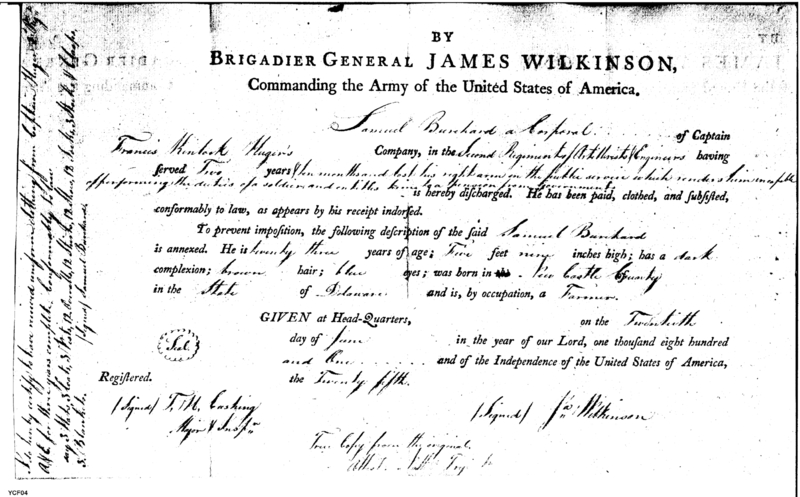 BY
BRIGADIER GENERAL JAMES WILKINSON,
Commanding the Army of the United States of America.
Samuel Burchard a Corporal of Captain
Francis Kinlock Huger's Company, in the Second Regiment of Artillerists & Engineers having
served Two years & ten months and lost his right arm in the public service which renders him incapable
of performing the duties of a soldier and entitles him to a pension from government
is hereby discharged. He has been paid, clothed, and subsisted,
conformably to law, as appears by his receipt indorsed.
To prevent imposition, the following description of the said Samuel Burchard
is annexed. He is twenty three years of age; Five feet nine inches high; has a dark
complexion; brown hair; blue eyes; was born in New Castle County
in the State of Delaware and is, by occupation, a Farmer.
GIVEN at Head-Quarters, on the Twentieth
day of June in the year of our Lord, one thousand eight hundred
and One and of the Independence of the United States of America,
the Twenty fifth.
Seal
Registered.
(Signed) T. H. Cushing
Major & Insp.r
(Signed) Ja.s Wilkinson
True Copy from the original.
Attest.
I do hereby certify to have received uniform clothing from Captain Huger's
3 Blankets. (Signed) Samuel Burchard
YCF04